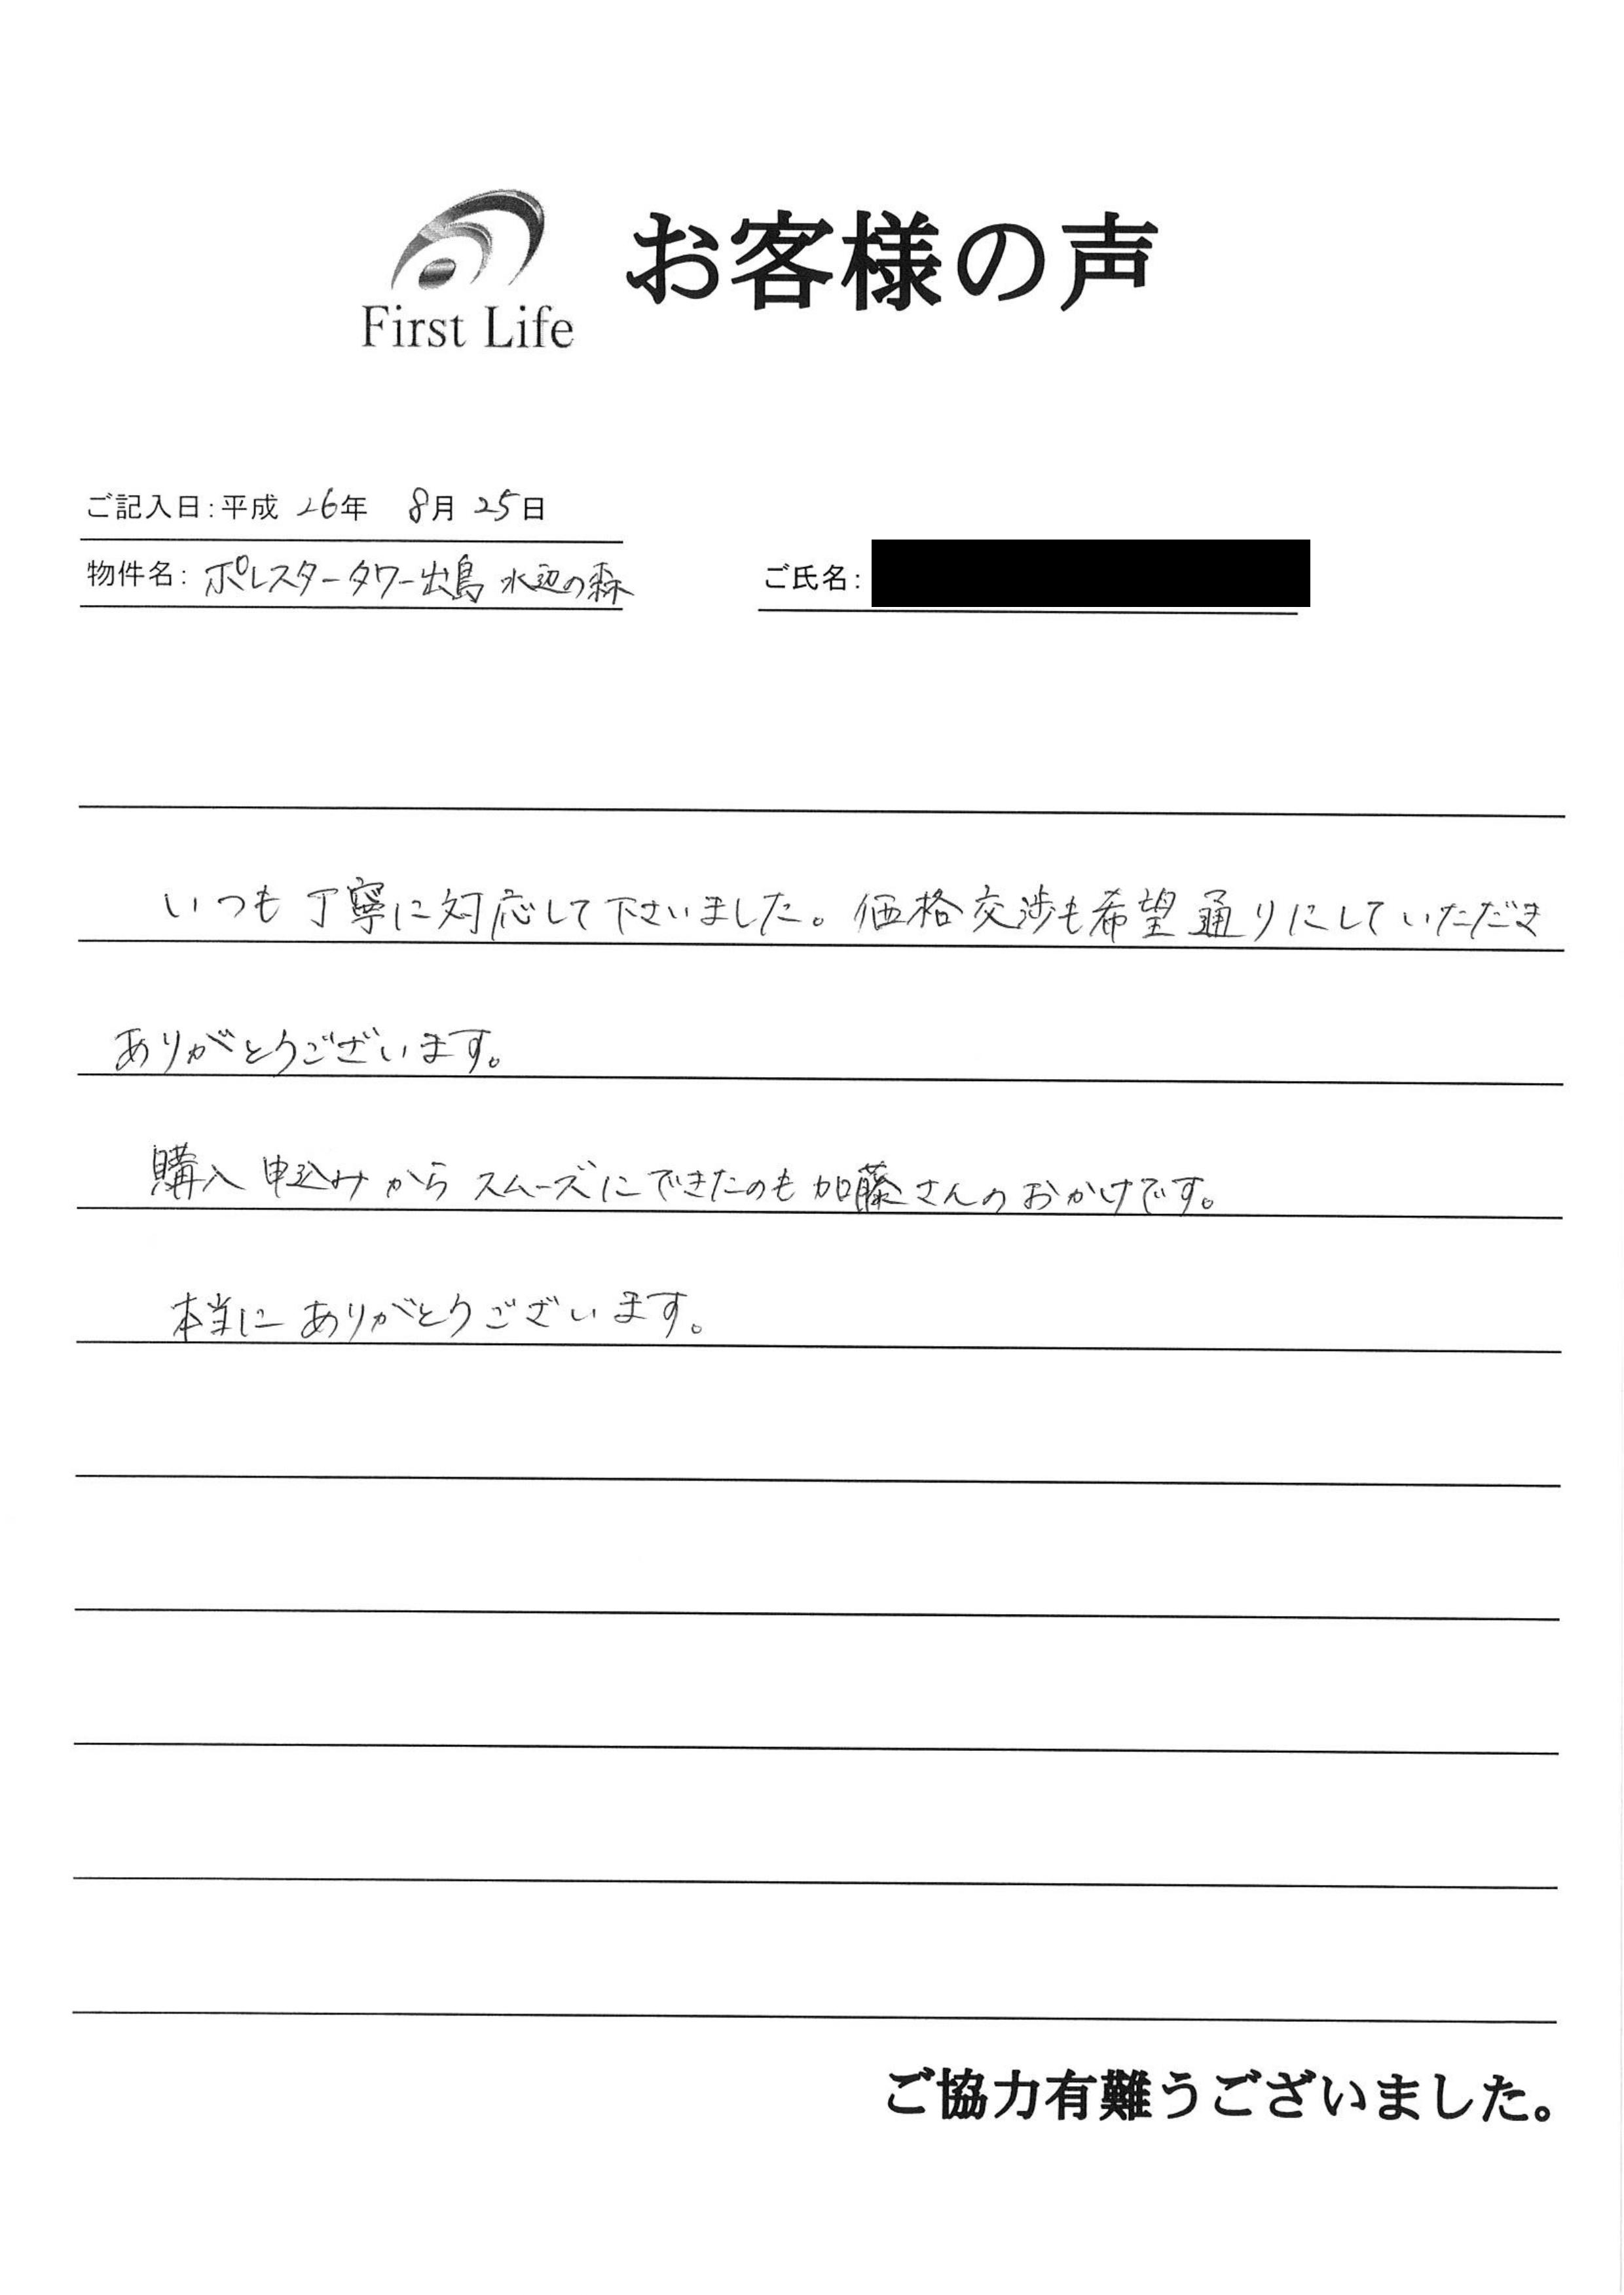 First Life
お客様の声
ご記入日:平成 26年 8月 25日
物件名: ポレスタータワー出島 水辺の森
ご氏名:
いつも丁寧に対応して下さいました。価格交渉も希望通りにしていただき
ありがとうございます。
購入申込みからスムーズにできたのも加藤さんのおかげです。
本当にありがとうございます。
ご協力有難うございました。